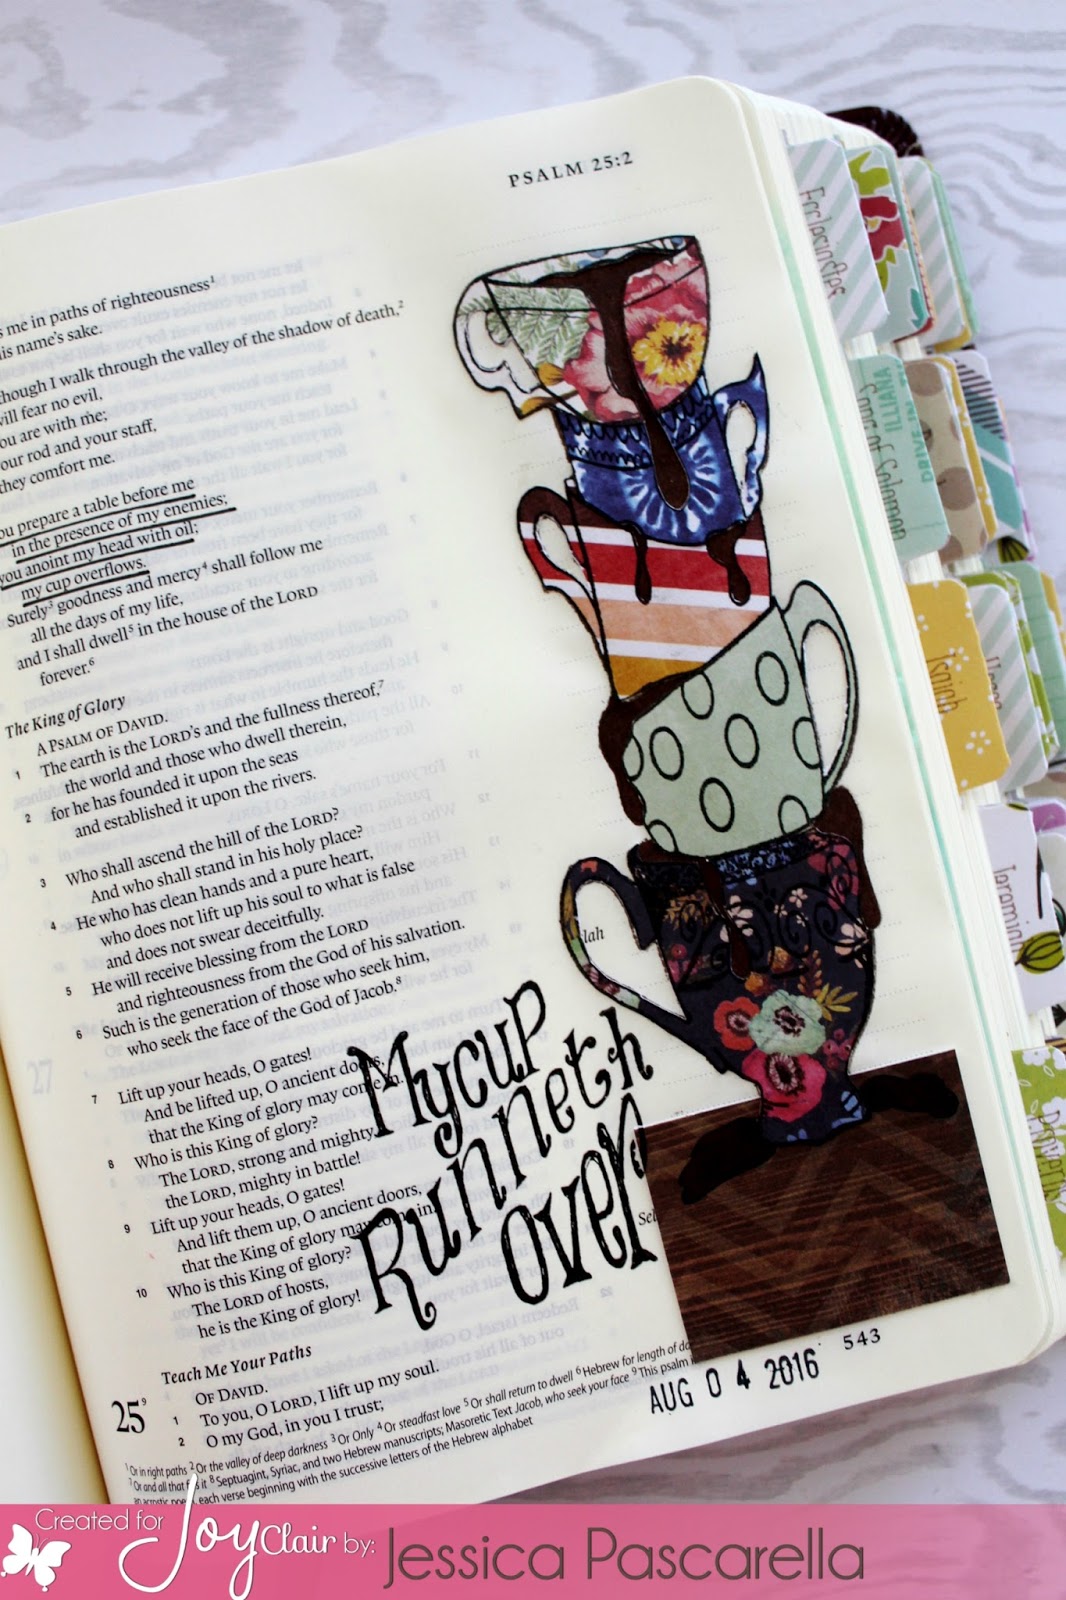 PSALM 25:2
me in paths of righteousness¹
name's sake.
though I walk through the valley of the shadow of death,²
will fear no evil,
you are with me;
your rod and your staff,
they comfort me.
You prepare a table before me
in the presence of my enemies;
you anoint my head with oil;
my cup overflows.
Surely³ goodness and mercy⁴ shall follow me
all the days of my life,
and I shall dwell⁵ in the house of the LORD
forever.⁶
The King of Glory
A PSALM OF DAVID.
1 The earth is the LORD's and the fullness thereof,⁷
the world and those who dwell therein,
2 for he has founded it upon the seas
and established it upon the rivers.
3 Who shall ascend the hill of the LORD?
And who shall stand in his holy place?
4 He who has clean hands and a pure heart,
who does not lift up his soul to what is false
and does not swear deceitfully.
5 He will receive blessing from the LORD
and righteousness from the God of his salvation.
6 Such is the generation of those who seek him,
who seek the face of the God of Jacob.⁸
lah
7 Lift up your heads, O gates!
And be lifted up, O ancient doors,
that the King of glory may come in.
8 Who is this King of glory?
The LORD, strong and mighty,
the LORD, mighty in battle!
9 Lift up your heads, O gates!
And lift them up, O ancient doors,
that the King of glory may come in.
10 Who is this King of glory?
The LORD of hosts,
he is the King of glory!
Sel
My cup
Runneth
over
Teach Me Your Paths
25⁹ OF DAVID.
1 To you, O LORD, I lift up my soul.
2 O my God, in you I trust;
¹ Or in right paths ² Or the valley of deep darkness ³ Or Only ⁴ Or steadfast love ⁵ Or shall return to dwell ⁶ Hebrew for length of da
⁷ Or and all that fills it ⁸ Septuagint, Syriac, and two Hebrew manuscripts; Masoretic Text Jacob, who seek your face ⁹ This psalm
an acrostic poem, each verse beginning with the successive letters of the Hebrew alphabet
543
AUG 04 2016
Ecclesiastes
Songs of Solomon
ILLIANA
DRIVE-IN
Isaiah
Jeremiah
Created for JoyClair by: Jessica Pascarella